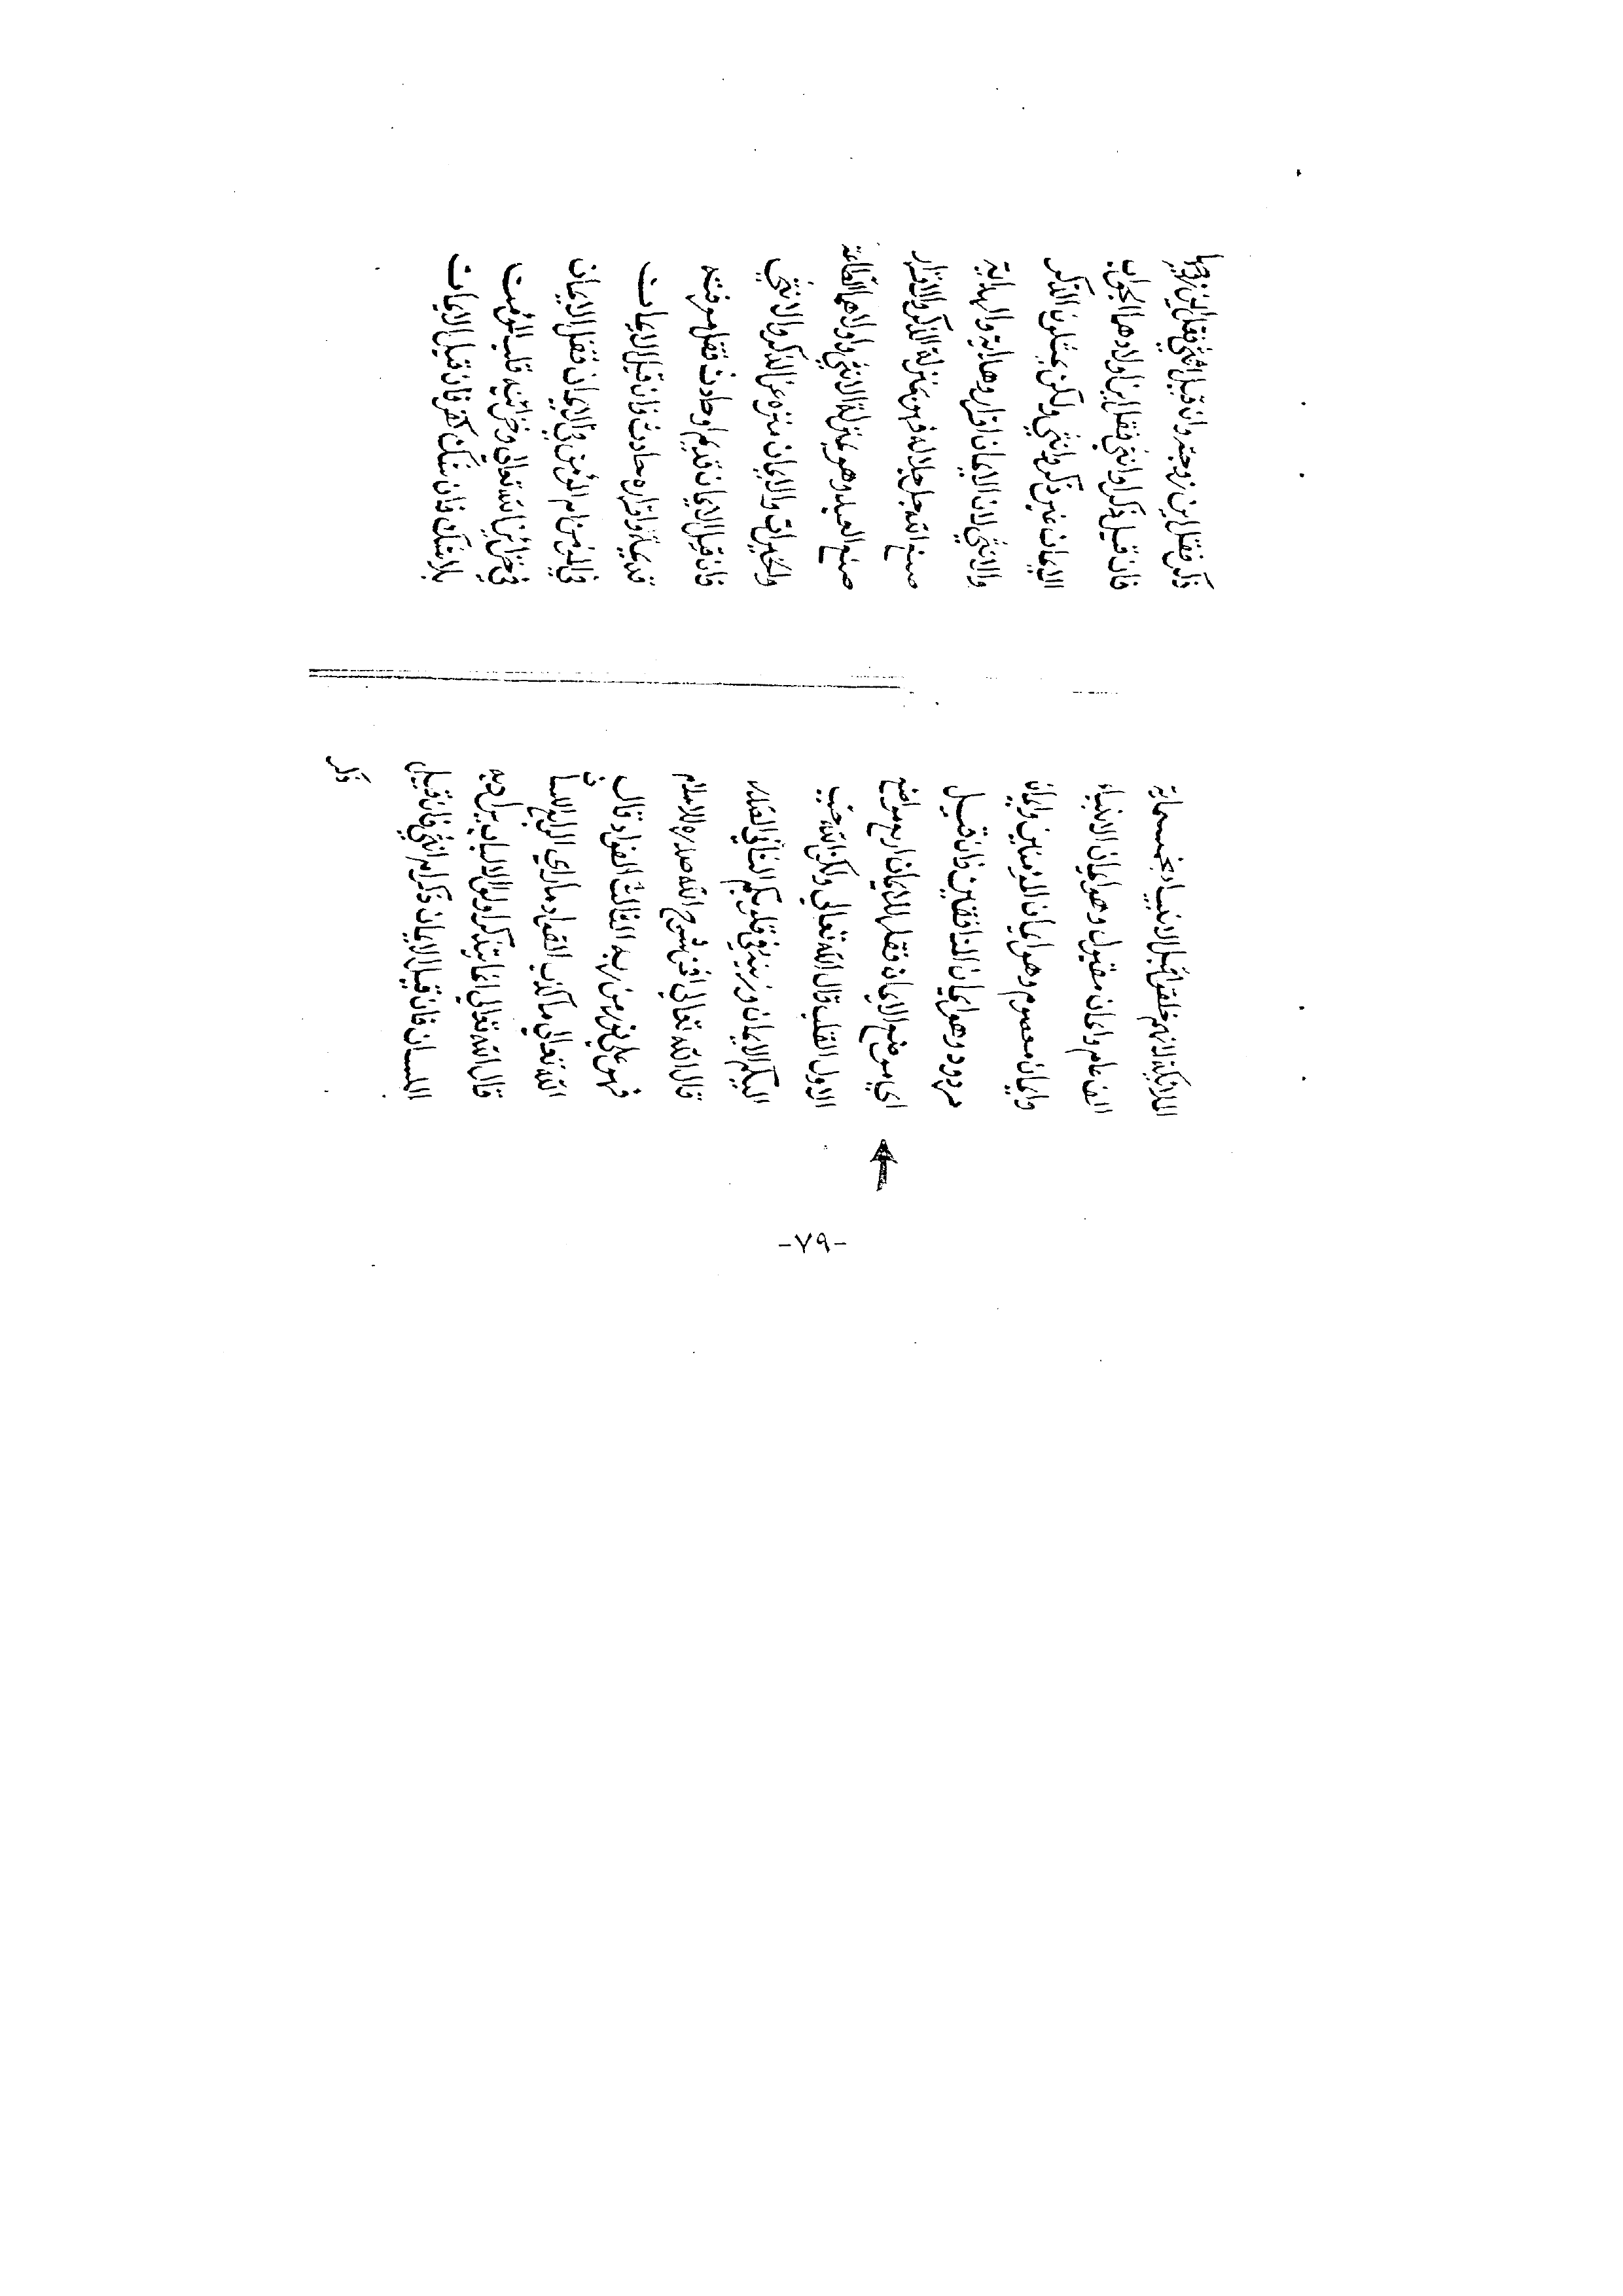 الملائكة لانهم خلقوا قبل الانبياء بخمسماية
الف عام وايمان مقبول وهو ايمان الانبياء
وايمان معصوم وهو ايمان المؤمنين وايمان
مردود وهو ايمان المنافقين فان قيل
اي موضع الايمان فقل للايمان اربع مواضع
الاول القلب قال الله تعالي ولكن الله حبب
اليكم الايمان وزينه في قلوبكم الثاني الصدر
قال الله تعالي افمن شرح الله صدره للاسلام
فهو علي نور من ربه الثالث الفواد قال
الله تعالي ما كذب الفواد ما راي الرابع اللسان
قال الله تعالي انما يتذكر اولوا الالباب
اللسان فان قيل الايمان ذكر ام انثي فان قيل
ذكر
ذكر فقل اين زوجته وان قيل انثي فقل اين زوجها
فان قيل ذكر او انثي فقل اين اولادها الجواب
الايمان غير ذكر وانثي ولكن يمثلون الذكر
والانثي لان الايمان اقرار وهداية والهداية
صنع الله جل جلاله فهو بمنزلة الذكر والاقرار
صنع العبد وهو بمنزلة الانثي واولادهما الطاعة
والخيرات والايمان منزه عن الذكر والانثي
فان قيل الايمان قديم او حادث فقل معرفته
قديمة واقراره حادث فان قيل الايمان
في المؤمن ام المؤمن في الايمان فقل الايمان
في خزاين الله تعالي وخزائنه قلب المؤمن
بلا شك فان شك كفر فان قيل الايمان
-٧٩-